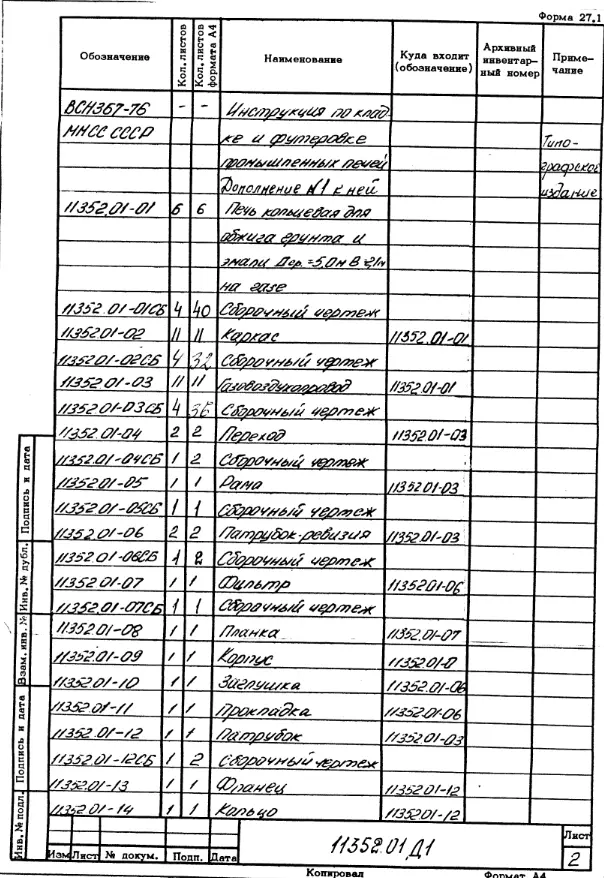 Форма 27.1
Обозначение Кол. листов Кол. листов формата А4 Наименование Куда входит (обозначение) Архивный инвентарный номер Примечание
ВСН367-76 - - Инструкция по клад
ММСС СССР ке и футеровке Типо-
промышленных печей графское
Дополнение №1 к ней издание
11352.01-01 6 6 Печь кольцевая для
обжига грунта и
эмали Дср.=5,0м В
на газе
11352.01-01СБ 4 40 Сборочный чертеж
11352.01-02 11 11 Каркас 11352.01-01
11352.01-02СБ 4 32 Сборочный чертеж
11352.01-03 11 11 Газовоздухопровод 11352.01-01
11352.01-03СБ 4 36 Сборочный чертеж
11352.01-04 2 2 Переход 11352.01-03
11352.01-04СБ 1 2 Сборочный чертеж
11352.01-05 1 1 Рама 11352.01-03
11352.01-05СБ 1 1 Сборочный чертеж
11352.01-06 2 2 Патрубок-ревизия 11352.01-03
11352.01-06СБ 1 2 Сборочный чертеж
11352.01-07 1 1 Фильтр 11352.01-06
11352.01-07СБ 1 1 Сборочный чертеж
11352.01-08 1 1 Планка 11352.01-07
11352.01-09 1 1 Корпус
11352.01-10 1 1 Заглушка 11352.01-06
11352.01-11 1 1 Прокладка 11352.01-06
11352.01-12 1 1 Патрубок 11352.01-03
11352.01-12СБ 1 2 Сборочный чертеж
11352.01-13 1 1 Фланец 11352.01-12
11352.01-14 1 1 Кольцо 11352.01-12
Инв. № подл. Подпись и дата Взам. инв. № Инв. № дубл. Подпись и дата
11352.01 Д1
Лист
2
Изм Лист № докум. Подп. Дата
Копировал Формат А4